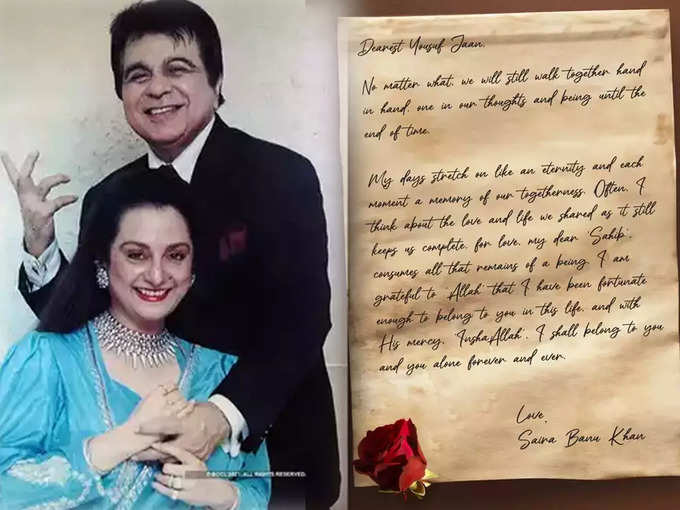 Dearest Yousuf Jaan,
No matter what, we will still walk together hand
in hand, one in our thoughts and being until the
end of time.
My days stretch on like an eternity and each
moment a memory of our togetherness. Often, I
think about the love and life we shared as it still
keeps us complete, for love, my dear 'Sahib',
consumes all that remains of a being. I am
grateful to 'Allah' that I have been fortunate
enough to belong to you in this life, and with
His mercy, 'InshaAllah', I shall belong to you
and you alone forever and ever.
Love,
Saira Banu Khan
ALL RIGHTS RESERVED.